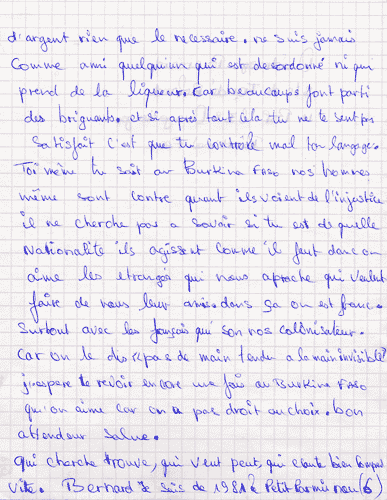 d'argent rien que le necessaire. ne suis jamais
comme ami quelqu'un qui est desordonné ni qui
prend de la liqueur. car beaucoups font parti
des briguants. et si après tout cela tu ne te sent pas
satisfait c'est que tu contrôle mal ton langage.
Toi même tu sait au Burkina Faso nos hommes
même sont contre quant ils voient de l'injustice
il ne cherche pas a savoir si tu est de quelle
Nationalité ils agissent comme il faut donc on
aime les etrangés qui nous aproche qui veulent
faire de nous leur amis. dans ça on est franc.
Surtout avec les français qui son nos colonisateur.
Car on le dis repas de main tendu a la main invisible?
j'espere te revoir encore une fois au Burkina Faso
qu'on aime car on a pas droit au choix. bon
attendeur Salue.
qui cherche trouve, qui veut peut, qui ecoute bien
vite. Bernard Je suis de 1981 à Petit Parmi nou (6)